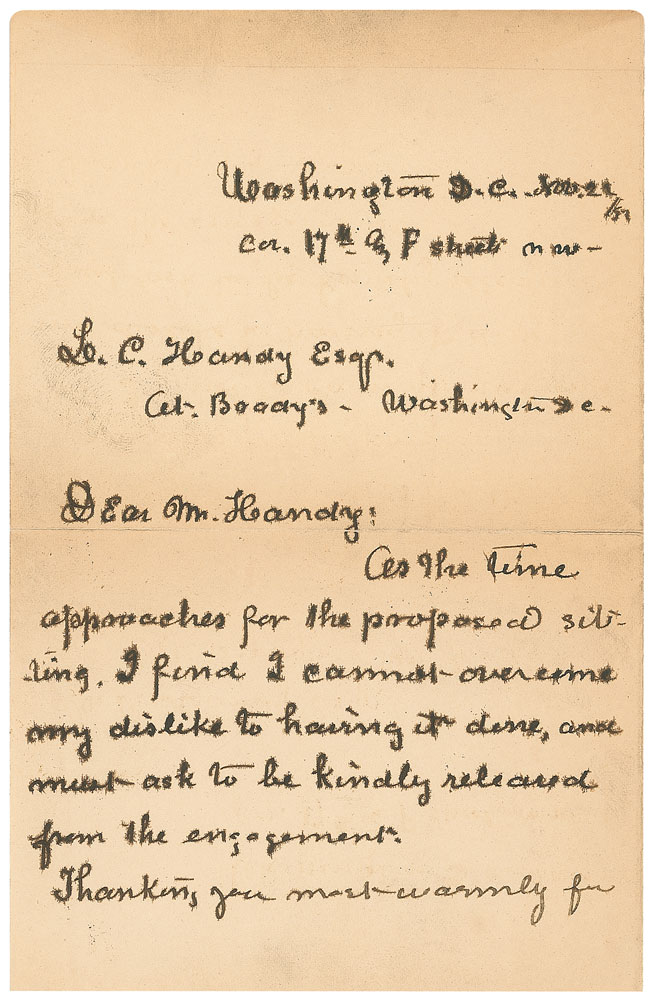 Washington D.C. Nov. 21
Cor. 17th & F street n w-
L. C. Handy Esqr.
At. Brady's - Washington D c.
Dear Mr. Handy:
As the time
approaches for the proposed sit-
ting. I find I cannot overcome
my dislike to having it done, and
must ask to be kindly released
from the engagement.
Thanking you most warmly for